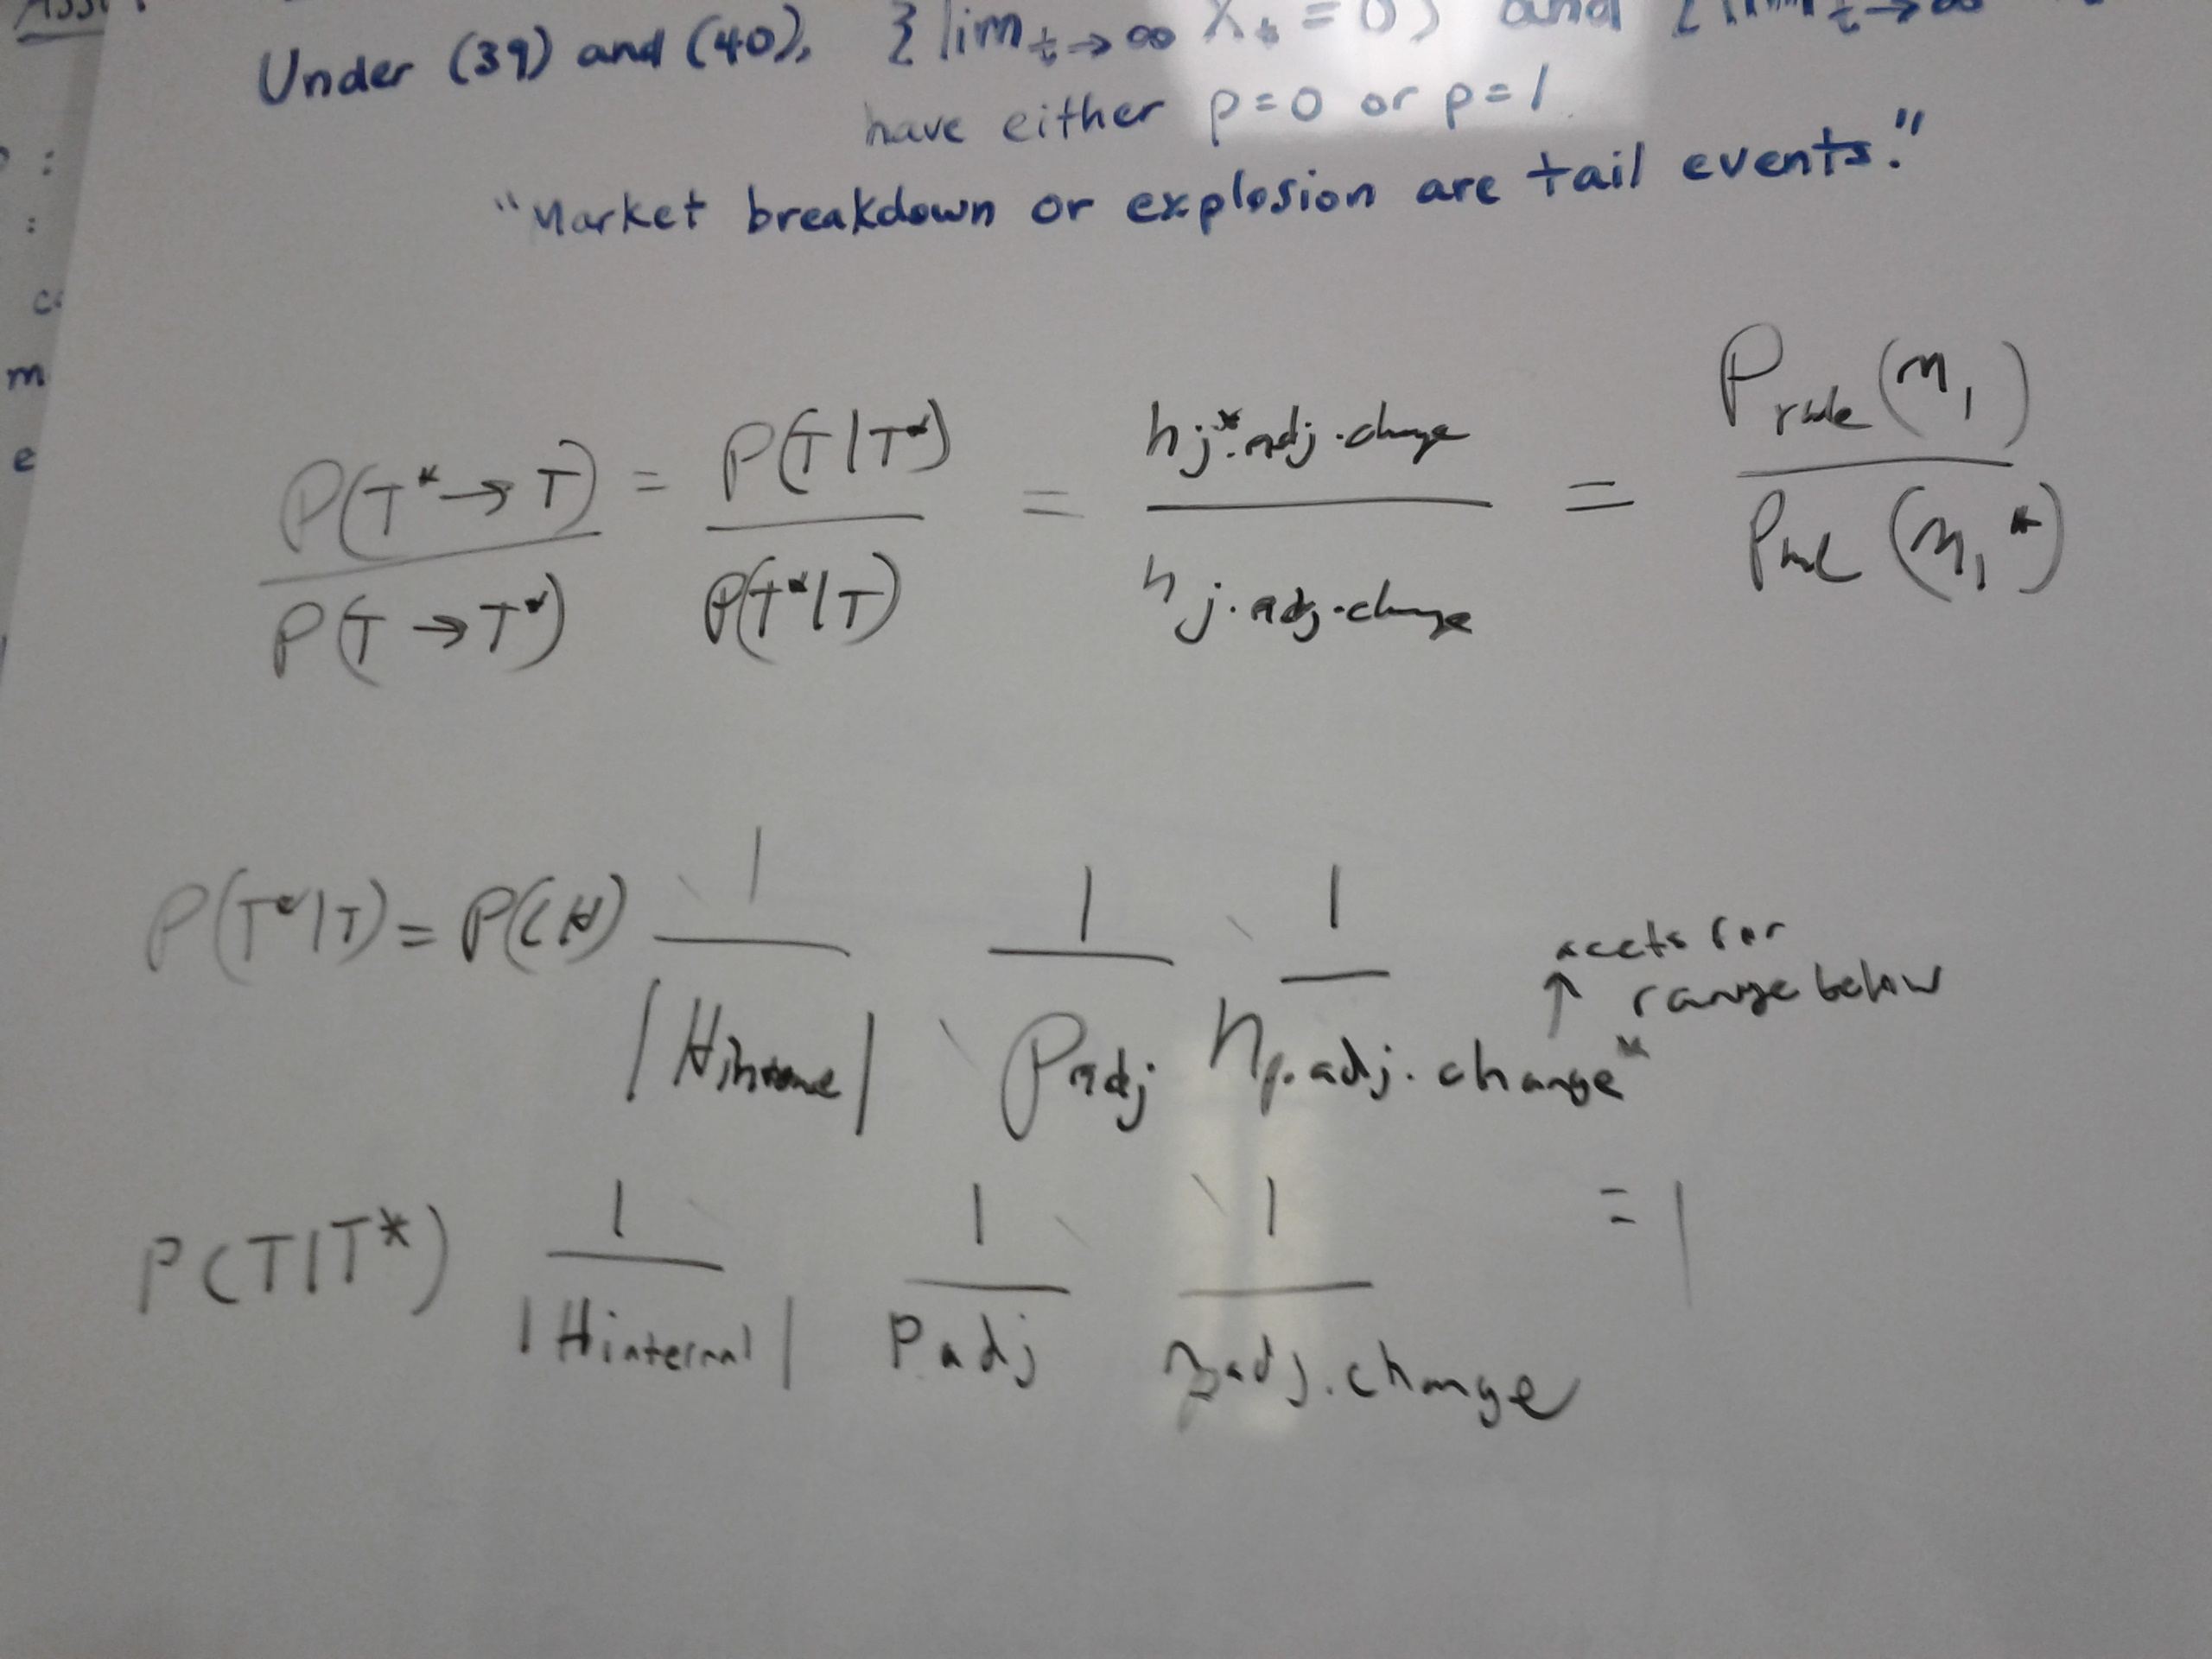 Under (39) and (40), { lim t→∞ X_t = 0 } and { lim t→∞
have either p=0 or p=1
"Market breakdown or explosion are tail events."
:
:
m
e
P(T*→T) / P(T→T*) = P(T|T*) / P(T*|T) = n_j*.adj.change / n_j.adj.change = P_rule(η_1) / P_rule(η_1*)
P(T*|T) = 1/|H_internal| 1/P_adj 1/n_p.adj.change*
↑ range below
P(T|T*) 1/|H_internal| 1/P_adj 1/η_adj.change = 1